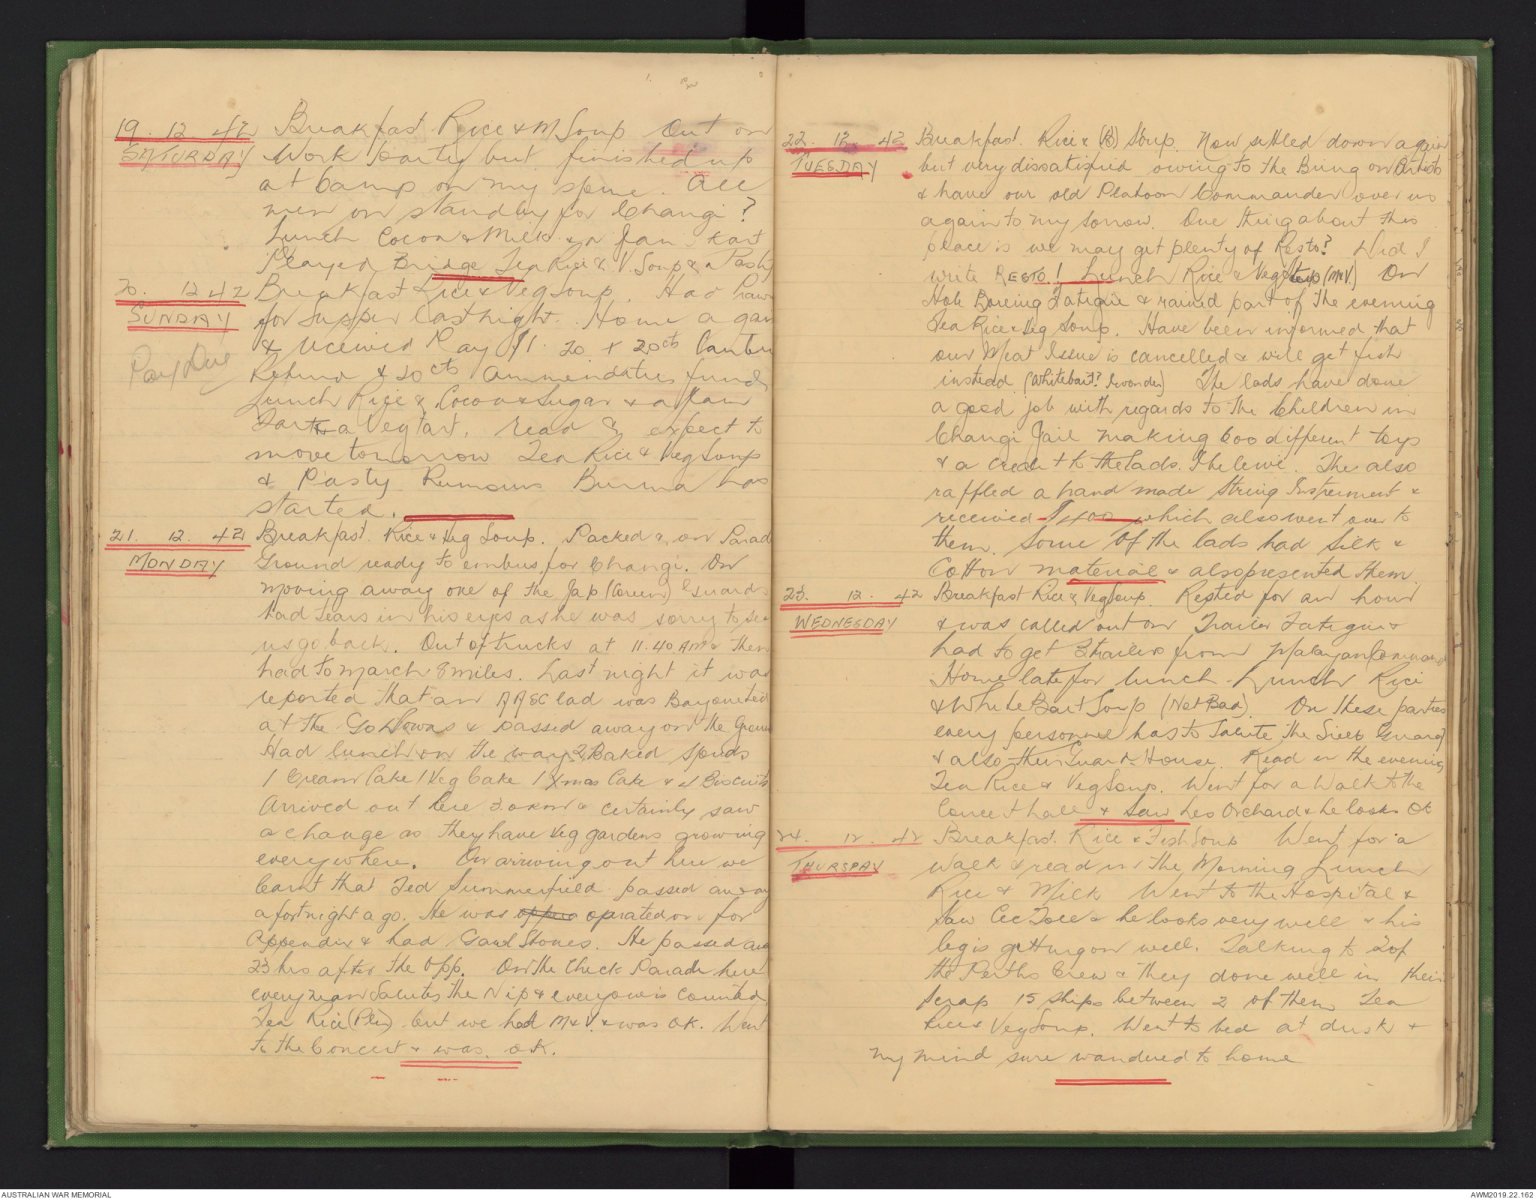 19. 12. 42
SATURDAY
Breakfast Rice & M Soup Out on
Work Party but finished up
at Camp on my spine. All
men on stand by for Changi?
Lunch Cocoa & Milk & a Jam Tart
Played Bridge Tea Rice & V Soup & a Pasty
20. 12 42
SUNDAY
Pay Due
Breakfast Rice & Veg Soup. Had Prawn
for supper last night. Home a gain
& received Pay $1.20 + 20cts Canteen
Refund & 20cts Ammendities fund
Lunch Rice & Cocoa & Sugar & a Jam
Tart & a Veg Tart. read & expect to
move tomorrow Tea Rice & Veg Soup
& Pasty. Rumours Burma has
started.
21. 12. 42
MONDAY
Breakfast. Rice & Veg Soup. Packed & on Parade
Ground ready to embus for Changi. On
moving away one of the Jap Guards
had tears in his eyes as he was sorry to see
us go back. Out of trucks at 11.40 AM & then
had to march 8 miles. Last night it was
reported that an AASC lad was Bayoneted
at the Go Downs & passed away on the Ground
Had lunch on the way 2 Baked Spuds
1 Cream Cake 1 Veg Cake 1 Xmas Cake & 2 Biscuits
Arrived out here & certainly saw
a change as they have Veg gardens growing
everywhere. On arriving out here we
learnt that Ted Summerfield passed away
a fortnight ago. He was operated on for
Appendix & had Gaul Stones. He passed away
23 hrs after the opp. On the Check Parade here
every man Salutes the Nip & everyone is counted
Tea Rice but we had M & V. & was OK. Went
to the Concert & was OK.
22. 12. 42
TUESDAY
Breakfast. Rice & Soup. Now settled down again
but very dissatisfied owing to the Bung on Artists
& have our old Platoon Commander over us
again to my sorrow. One thing about this
place is we may get plenty of Resto? Did I
write RESTO! Lunch Rice & Veg Stew (M&V). On
Hole Boreing Fatigue & raind part of the evening
Tea Rice & Veg Soup. Have been informed that
our Meat Issue is cancelled & will get fish
instead (Whitebait? I wonder) The lads have done
a good job with regards to the Children in
Changi Jail making 600 different toys
& a credit to the lads. The also
raffled a hand made String Instrument &
received $400 which also went over to
them. Some of the lads had Silk &
Cotton material & also presented them.
23. 12. 42
WEDNESDAY
Breakfast Rice & Veg Soup. Rested for an hour
& was called out on Trailer Fatigue &
had to get 3 trailers from Malayan Command
Home late for lunch. Lunch Rice
& White Bait Soup (Not Bad). On these parties
every personnel has to Salute the Siee Guard
& also their Guard House. Read in the evening
Tea Rice & Veg Soup. Went for a Walk to the
Concert hall & Saw Les Orchard & he looks OK
24. 12. 42
THURSDAY
Breakfast. Rice & Fish Soup Went for a
Walk & read in the Morning Lunch
Rice & Milk Went to the Hospital &
Saw Cec & he looks very well & his
leg is getting on well. Talking to 2 of
the Perths Crew & they done well in their
Scrap 15 Ships between 2 of them Tea
Rice & Veg Soup. Went to bed at dusk &
my mind sure wandered to home
AUSTRALIAN WAR MEMORIAL
AWM2019.22.162